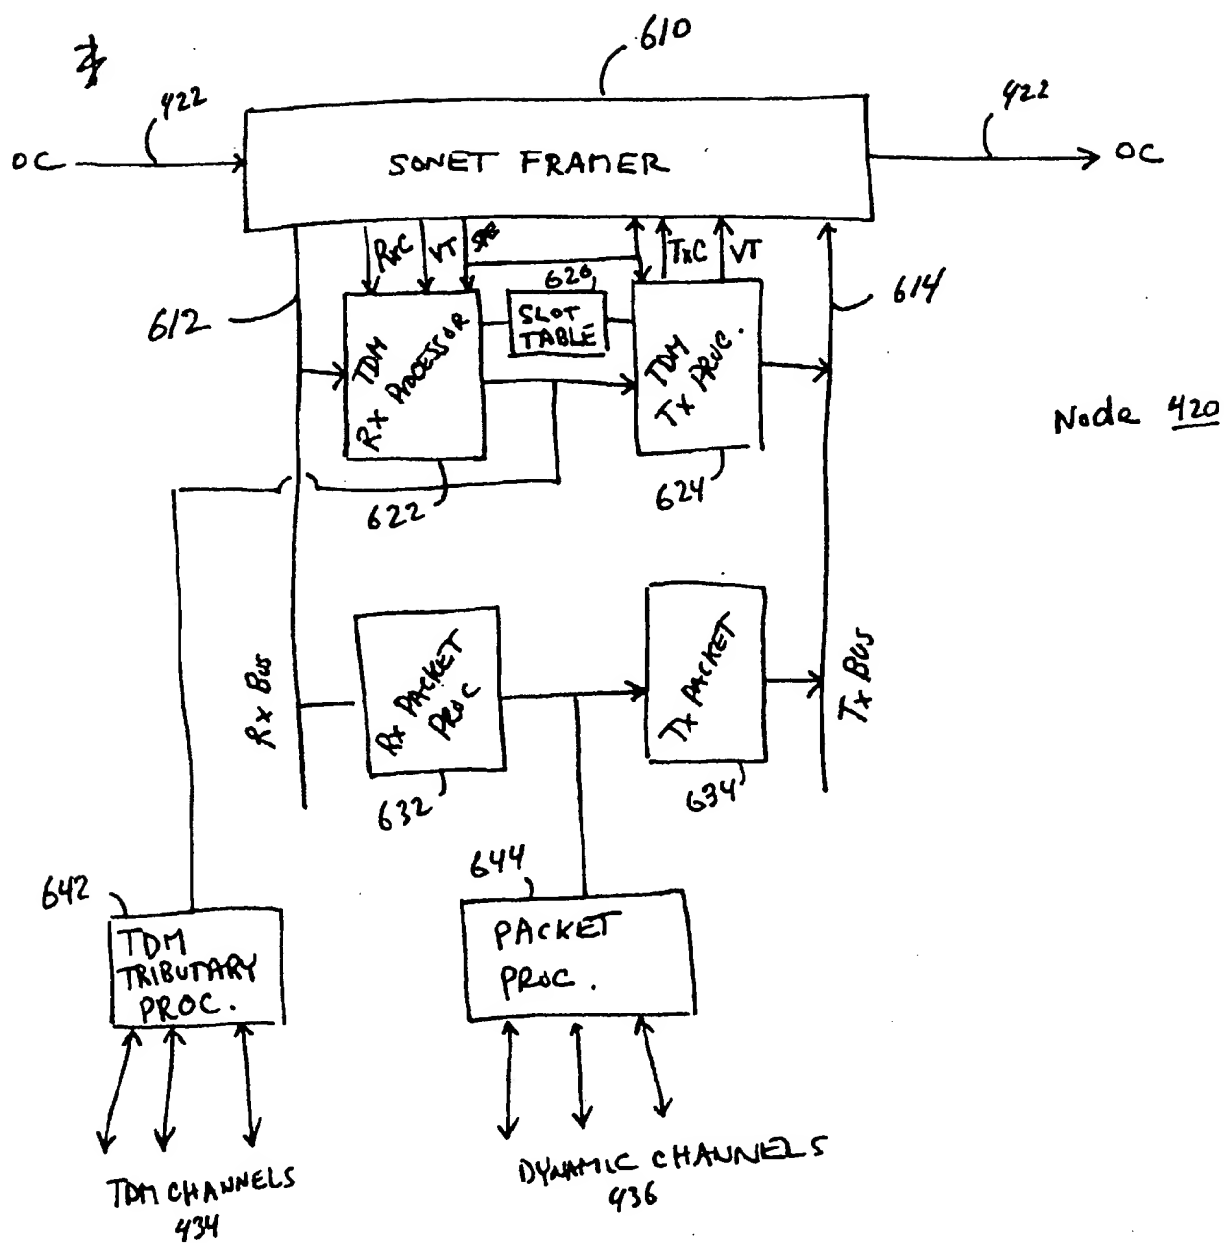 610
422
422
OC
SONET FRAMER
OC
RxC
VT
SPE
TxC
VT
626
612
614
TDM
RX PROCESSOR
SLOT
TABLE
TDM
Tx PROC.
Node 420
622
624
Rx Bus
Rx PACKET
PROC
Tx PACKET
Tx BUS
632
634
642
644
TDM
TRIBUTARY
PROC.
PACKET
PROC.
TDM CHANNELS
434
DYNAMIC CHANNELS
436